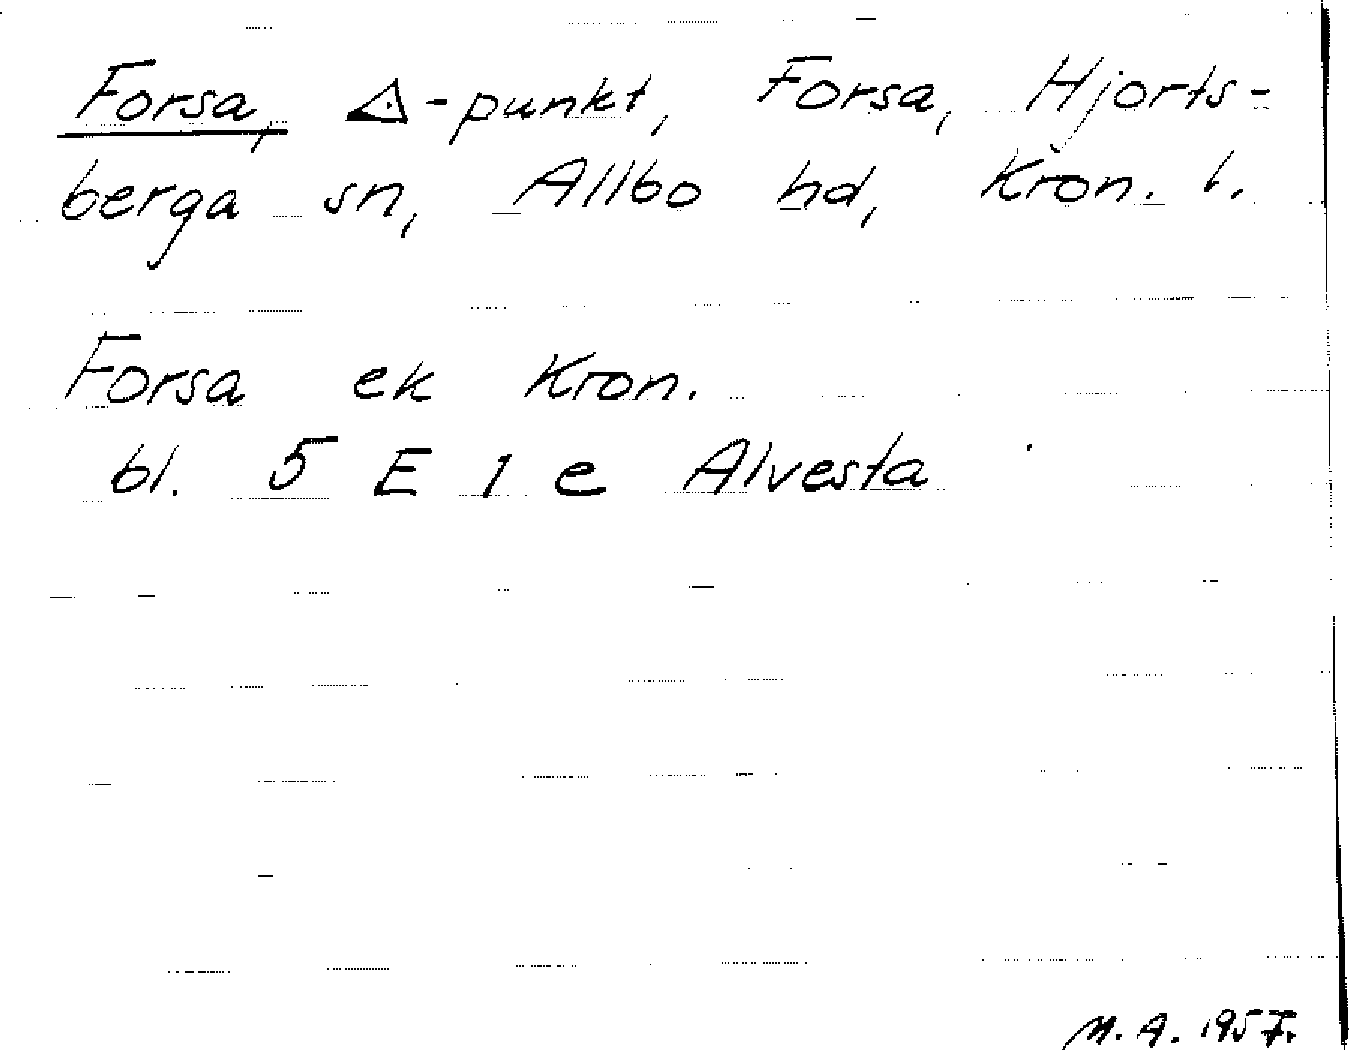 Forsa, △-punkt, Forsa, Hjorts-
berga sn, Allbo hd, Kron. l.
Forsa ek Kron.
bl. 5 E 1 e Alvesta
M.A. 1957.